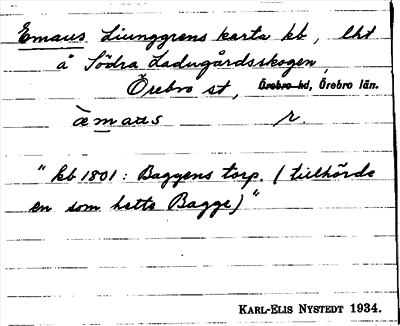 Emaus Liunggrens karta kb, lht
å Södra Ladugårdsskogen,
Örebro st, Örebro hd, Örebro län.
æmaus r.
"kb 1801: Baggens torp. (tillhörde
en som hette Bagge)"
KARL-ELIS NYSTEDT 1934.